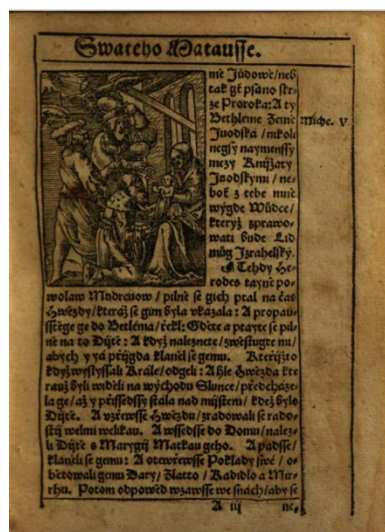 Swateho Matausse.
mě Júdowě/neb
tak gt psáno skr-
ze Proroka: A ty
Betleme Země
Juodská/nikoli
negsy naymenssy
mezy Knijžaty
Juodskymi/ne-
boť z tebe mně
wýgde Wůdce/
kteryž zprawo-
wati bude Lid
můg Jzrahelský.
Tehdy He-
rodes tayně po-
wolaw Mudrcuow/pilně se gich ptal na čas
Hwězdy/kteráž se gim byla vkázala: A propau-
sstěge ge do Betléma/řekl: Gděte a ptayte se pil-
ně na to Dijtě: A když naleznete/zwěstugte mi/
abych y yá přigda klaněl se gemu. Kteřijžto
kdyžwyslyssali Krále/odgeli: A hle Hwězda kte-
rauž byli widěli na wýchodu Slunce/předcháze-
la ge/až y přissedssy stála nad mijstem/kdež bylo
Dijtě. A vzřewsse Hwězdu/zradowali se rado-
stij welmi welikau. A wssedsse do Domu/nalez-
li Dijtě s Marygij Matkau geho. A padsse/
klaněli se gemu: A otewřewsse Poklady swé/o-
bětowali gemu Dary/Zlatto/Kadidlo a Mir-
rhu. Potom odpowěd wzawsse we snách/aby se
A iij ne,
Miche. V